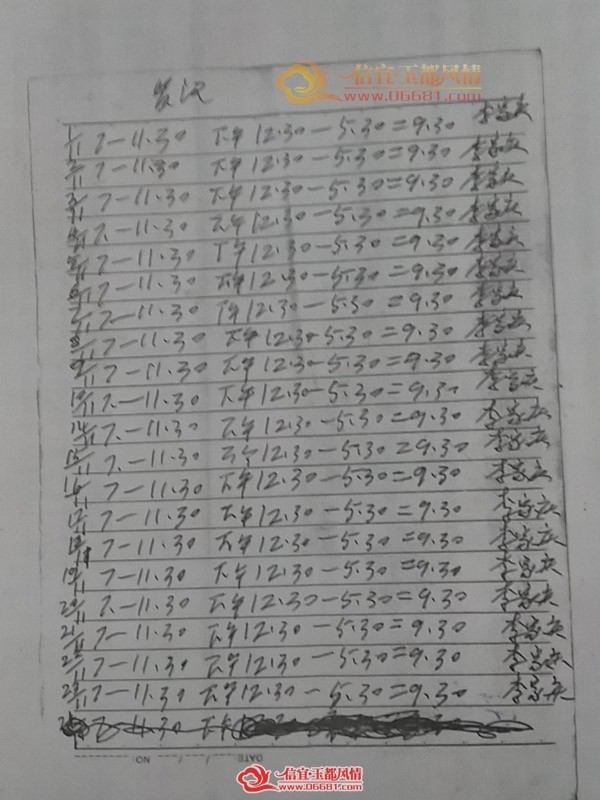 信宜玉都风情
www.06681.com
1/11 7—11.30 下午12.30—5.30=9.30 李家庆
2/11 7—11.30 下午12.30—5.30=9.30 李家庆
3/11 7—11.30 下午12.30—5.30=9.30 李家庆
4/11 7.—11.30 下午12.30—5.30=9.30 李家庆
5/11 7—11.30 下午12.30—5.30=9.30 李家庆
6/11 7—11.30 下午12.30—5.30=9.30 李家庆
7/11 7—11.30 下午12.30—5.30=9.30 李家庆
8/11 7—11.30 下午12.30—5.30=9.30 李家庆
9/11 7—11.30 下午12.30—5.30=9.30 李家庆
10/11 7.—11.30 下午12.30—5.30=9.30 李家庆
14/11 7.—11.30 下午12.30—5.30=9.30 李家庆
15/11 7.—11.30 下午12.30—5.30=9.30 李家庆
16/11 7—11.30 下午12.30—5.30=9.30 李家庆
17/11 7—11.30 下午12.30—5.30=9.30 李家庆
18/11 7—11.30 下午12.30—5.30=9.30 李家庆
19/11 7—11.30 下午12.30—5.30=9.30 李家庆
20/11 7.—11.30 下午12.30—5.30=9.30 李家庆
21/11 7—11.30 下午12.30—5.30=9.30 李家庆
22/11 7—11.30 下午12.30—5.30=9.30 李家庆
23/11 7—11.30 下午12.30—5.30=9.30 李家庆
DATE / / NO.
信宜玉都风情
www.06681.com